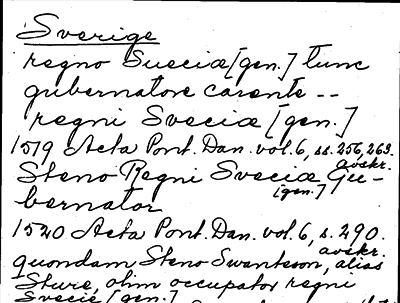 Sverige
regno Sueciæ [gen.] tunc
gubernatore carente --
regni Sveciæ [gen.]
1519 Acta Pont. Dan. vol. 6, ss. 256, 263.
avskr.
Steno Regni Sveciæ Gu-
[gen.]
bernator
1520 Acta Pont. Dan. vol. 6, s. 290.
avskr.
quondam Steno Swantesson, alias
Sture, olim occupator regni
Svecie [gen.]